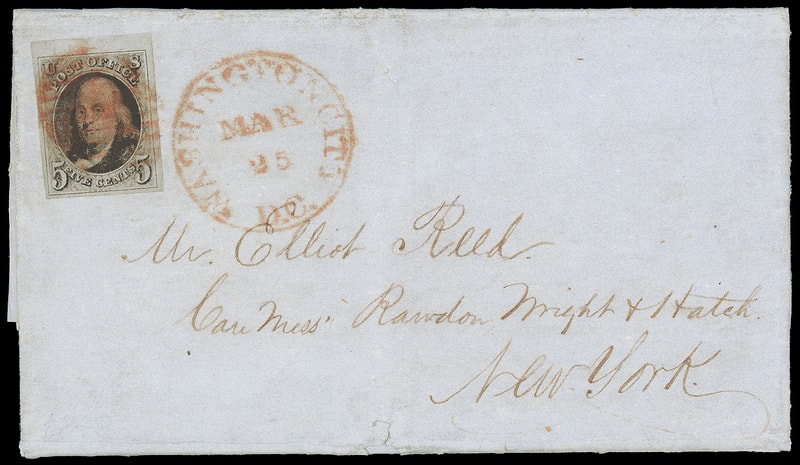 U S
POST OFFICE
5 FIVE CENTS 5
WASHINGTON CITY
MAR
25
D.C.
Mr. Elliot Reed.
Care Mess. Rawdon Wright & Hatch.
New York.